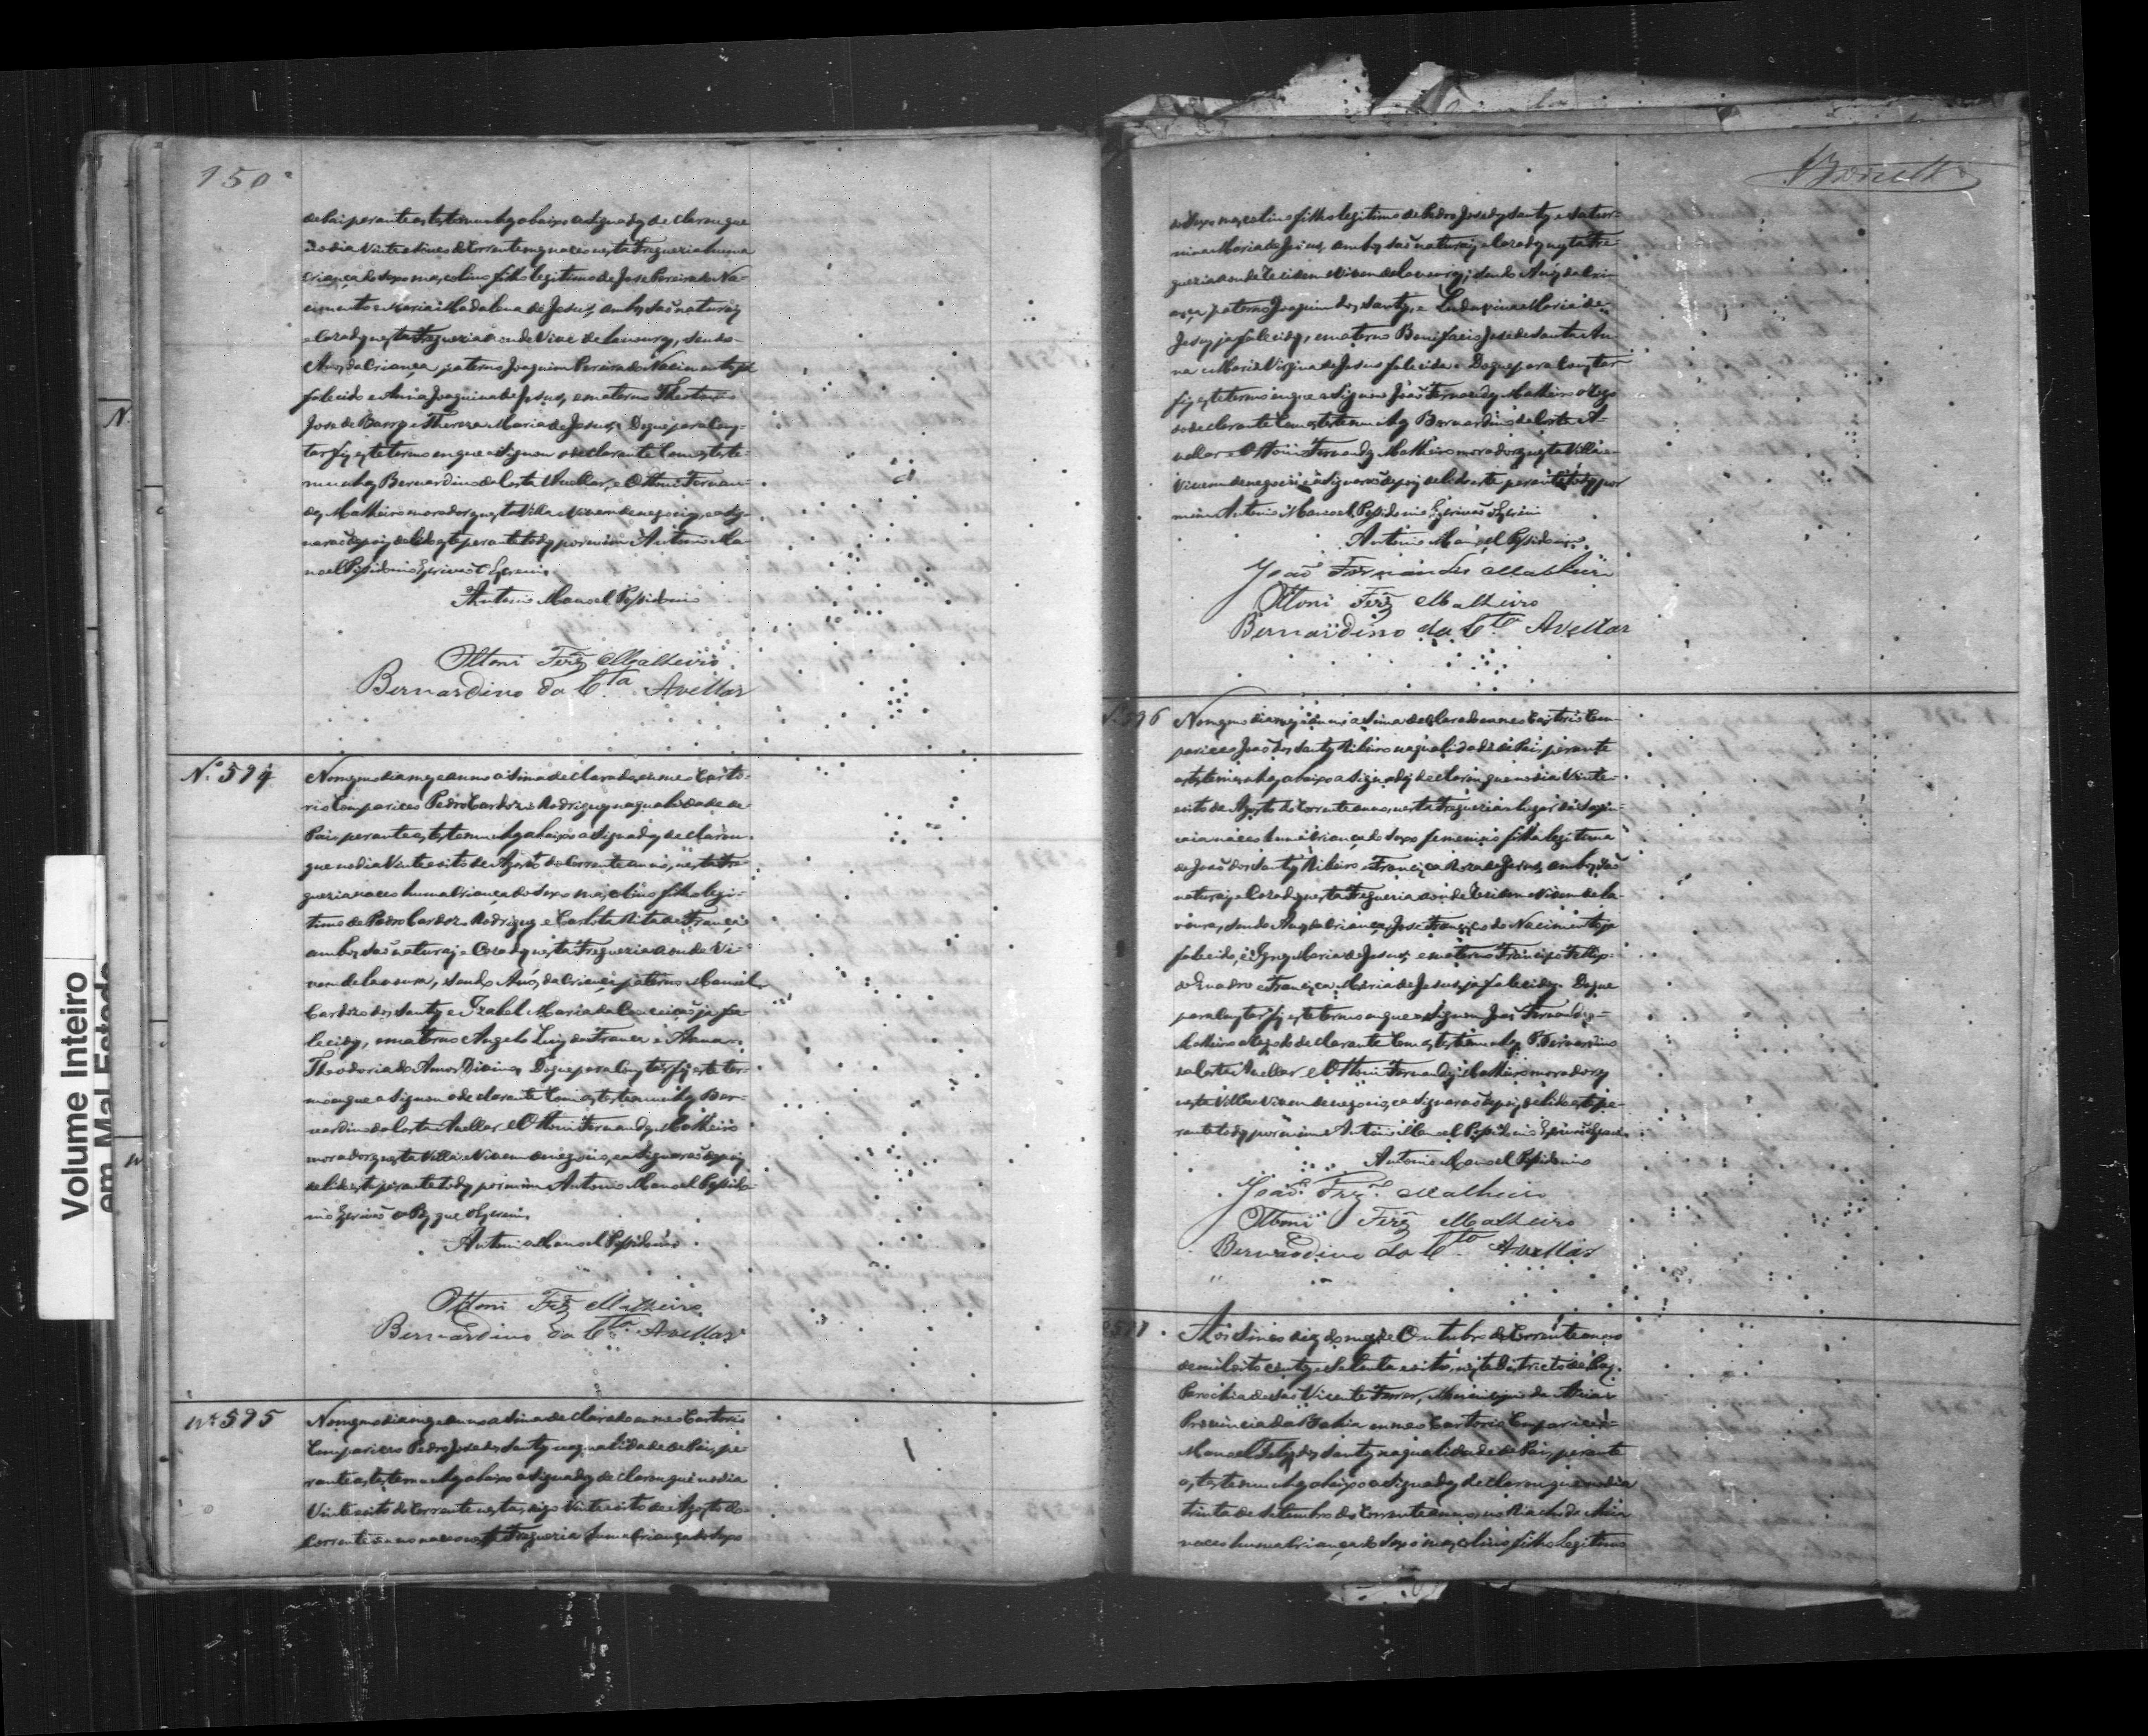 150
de Pai perante as testemunhas abaixo asignadas declarou que
no dia Vinte e sinco do Corrente mes naceo nesta Fregueria huma
Criança do Sexo mascolino filho legitimo de Jose Pereira do Na-
cimento e Maria Madalena de Jesus, ambos saõ naturaes
e Cazados nesta Fregueria aonde Vive de lavouras, sendo
Avos da Criança paterno Joaquim Pereira do Nacimento já
falecido e Anna Joaquina de Jesus, e materno
Jose de Barros e Thereza Maria de Jesus. Do que para Cons-
tar fis este termo em que asignou o declarante Com as teste-
munhas Bernardino da Costa Avellar, e Ottoni Fernan-
des Malheiro moradores nesta Villa e Vivem de negocios, e asig-
naraõ depois de lido este perante todos por mim Antonio Ma-
noel Possidonio Escrivaõ O Escrevi
Antonio Manoel Possidonio
Ottoni Frz Malheiro
Bernardino da Cta Avellar
Nº 594
No mesmo dia mes e anno asima declarado, em meo Carto-
rio Compareceo Pedro Cardozo Rodrigues na qualidade de
Pai, perante as testemunhas abaixo asignadas declarou
que no dia Vinte e oito de Agosto do Corrente anno, nesta Fre-
gueria naceo huma Criança do Sexo mascolino filho legi-
timo de Pedro Cardozo Rodrigues e Carlota Rita de França
ambos saõ naturaes e Cazados nesta Fregueria aonde Vi-
vem de lavoura, sendo Avós da Criança paterno Manoel
Cardozo dos Santos e Izabel Maria da Conceicaõ ja fa-
lecidos, e materno Angelo Luiz da Franca e Anna
Theodoria do Amor Divino. Do que para Constar fis este ter-
mo em que asignou o declarante Com as testemunhas Ber-
nardino da Costa Avellar e Ottoni Fernandes Malheiro
moradores nesta Villa e Vivem de negocio, e asignaraõ depois
de lido este perante todos por mim Antonio Manoel Possido-
nio Escrivaõ de Paz que o Escrevi
Antonio Manoel Possidonio
Ottoni Frz Malheiro
Bernardino da Cta Avellar
Nº 595
No mesmo dia mes e anno asima declarado em meo Cartorio
Compareceo Pedro Jose dos Santos na qualidade de Pai, pe-
rante as testemunhas abaixo asignadas declarou que no dia
Vinte e oito do Corrente nesta digo Vinte e oito de Agosto do
Corrente anno naceo nesta Fregueria huma Criança do Sexo
do Sexo mascolino filho legitimo de Pedro Jose dos Santos e Satur-
nina Maria de Jesus, ambos saõ naturaes e Cazados nesta Fre-
gueria aonde Rezidem e Vivem de lavouras; sendo Avós da Cri-
ança paterno Joaquim dos Santos, e Maria de
Jesus ja falecidos, e materno Bonifacio Jose de Santa An-
na e Maria Virgina de Jesus falecida. Do que para Constar
fis este termo em que asignou Joaõ Fernandes Malheiro a Rogo
do declarante Com as testemunhas Bernardino da Costa A-
vellar e Ottoni Fernandes Malheiro moradores nesta Villa e
Vivem de negocio e asignaraõ depois de lido este perante todos por
mim Antonio Manoel Possidonio Escrivaõ o Escrevi
Antonio Manoel Possidonio
Joaõ Fernandes Malheiro
Ottoni Frz Malheiro
Bernardino da Cta Avellar
N. 596
No mesmo dia mes e anno asima declarado em meo Cartorio Com-
pareceo Joaõ dos Santos Ribeiro na qualidade de Pai, perante
as testemunhas abaixo asignadas declarou que no dia Vinte
e oito de Agosto do Corrente anno, nesta Fregueria lugar
naceo huma Criança do Sexo femenino filha legitima
de Joaõ dos Santos Ribeiro e Francisca Roza de Jesus, ambos saõ
naturaes e Cazados nesta Fregueria aonde Rezidem e Vivem de la-
voura, sendo Avos da Criança, Jose Francisco do Nacimento ja
falecido, e Ignes Maria de Jesus, e materno Francisco Fellip-
e Francisca Maria de Jesus ja falecidos. Do que
para Constar fis este termo em que asignou Joaõ Fernandes
Malheiro a Rogo do declarante Com as testemunhas Bernardino
da Costa Avellar, e Ottoni Fernandes Malheiro moradores
nesta Villa e Vivem de negocio, e asignaraõ depois de lido este pe-
rante todos por mim Antonio Manoel Possidonio Escrivaõ Escrevi
Antonio Manoel Possidonio
Joaõ Frz Malheiro
Ottoni Frz Malheiro
Bernardino da Cta Avellar
597
Aos sinco dias do mes de Outubro do Corrente anno
de mil oito centos e Setenta e oito, neste Districto de Paz
Parochia de Saõ Vicente Ferrer, Municipio da Areia
Provincia da Bahia em meo Cartorio Compareceo
Manoel Felis dos Santos na qualidade de Pai, perante
as testemunhas abaixo asignadas declarou que no dia
trinta de Setembro do Corrente anno, no Riacho de Areia
naceo huma Criança do Sexo mascolino filho legitimo
Volume Inteiro
em Mal Estado